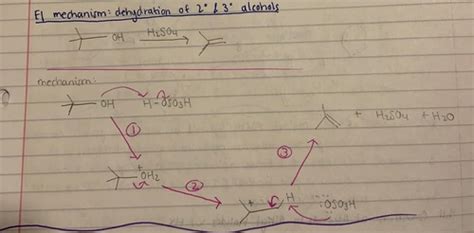 E1 mechanism: dehydration of 2° & 3° alcohols
OH H₂SO₄
mechanism:
OH H-OSO₃H
+ H₂SO₄ + H₂O
①
③
+
OH₂
②
+ H :OSO₃H